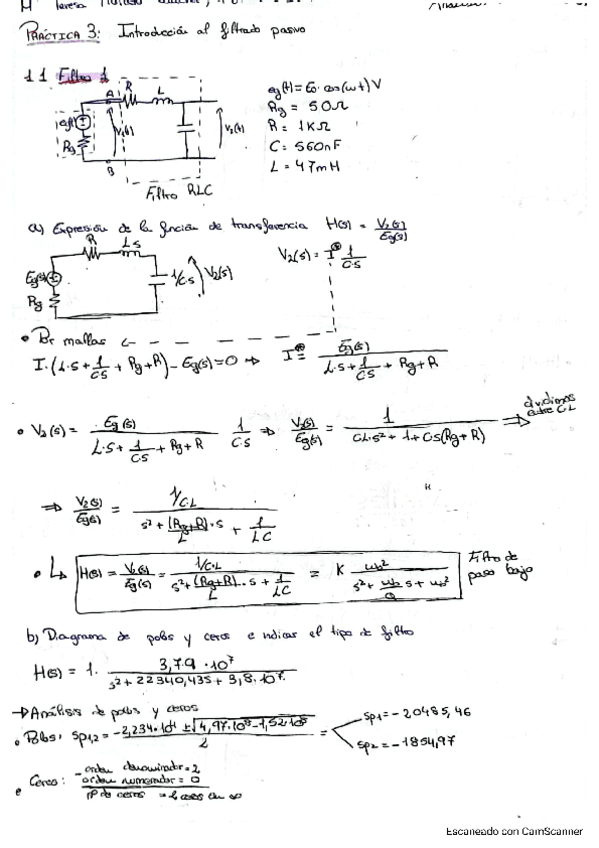 PRÁCTICA 3: Introducción al filtrado pasivo
1.1 Filtro 1
R L
A
eg(t)
Rg
V1(t)
V2(t)
B
Filtro RLC
eg(t) = E0·cos(ωt) V
Rg = 50Ω
R = 1KΩ
C = 560nF
L = 47mH
a) Expresión de la función de transferencia H(s) = V2(s)/Eg(s)
R LS
Eg(s)
Rg
1/C·s
V2(s)
V2(s) = I · 1/C·s
• Por mallas
I·(L·s + 1/CS + Rg+R) - Eg(s) = 0 ⇒ I = Eg(s)/(L·s + 1/CS + Rg+R)
• V2(s) = Eg(s)/(L·s + 1/CS + Rg+R) 1/C·s ⇒ V2(s)/Eg(s) = 1/(CL·s² + 1 + Cs(Rg+R)) ⇒ dividimos entre CL
⇒ V2(s)/Eg(s) = (1/C·L)/(s² + (Rg+R)/L·s + 1/LC)
• ↳ H(s) = V2(s)/Eg(s) = (1/C·L)/(s² + (Rg+R)/L·s + 1/LC) = K ω0²/(s² + ω0/Q s + ω0²)
Filtro de paso bajo
b) Diagrama de polos y ceros e indicar el tipo de filtro
H(s) = 1 · 3,79·10⁷/(s² + 22340,435 + 3,8·10⁷)
→ Análisis de polos y ceros
• Polos: sp1,2 = (-2,234·10⁴ ± √(4,97·10⁸ - 1,52·10⁸))/2 =
sp1 = -20485,46
sp2 = -1854,97
• Ceros: - orden denominador = 2
orden numerador = 0
nº de ceros = 2 ceros en ∞
Escaneado con CamScanner